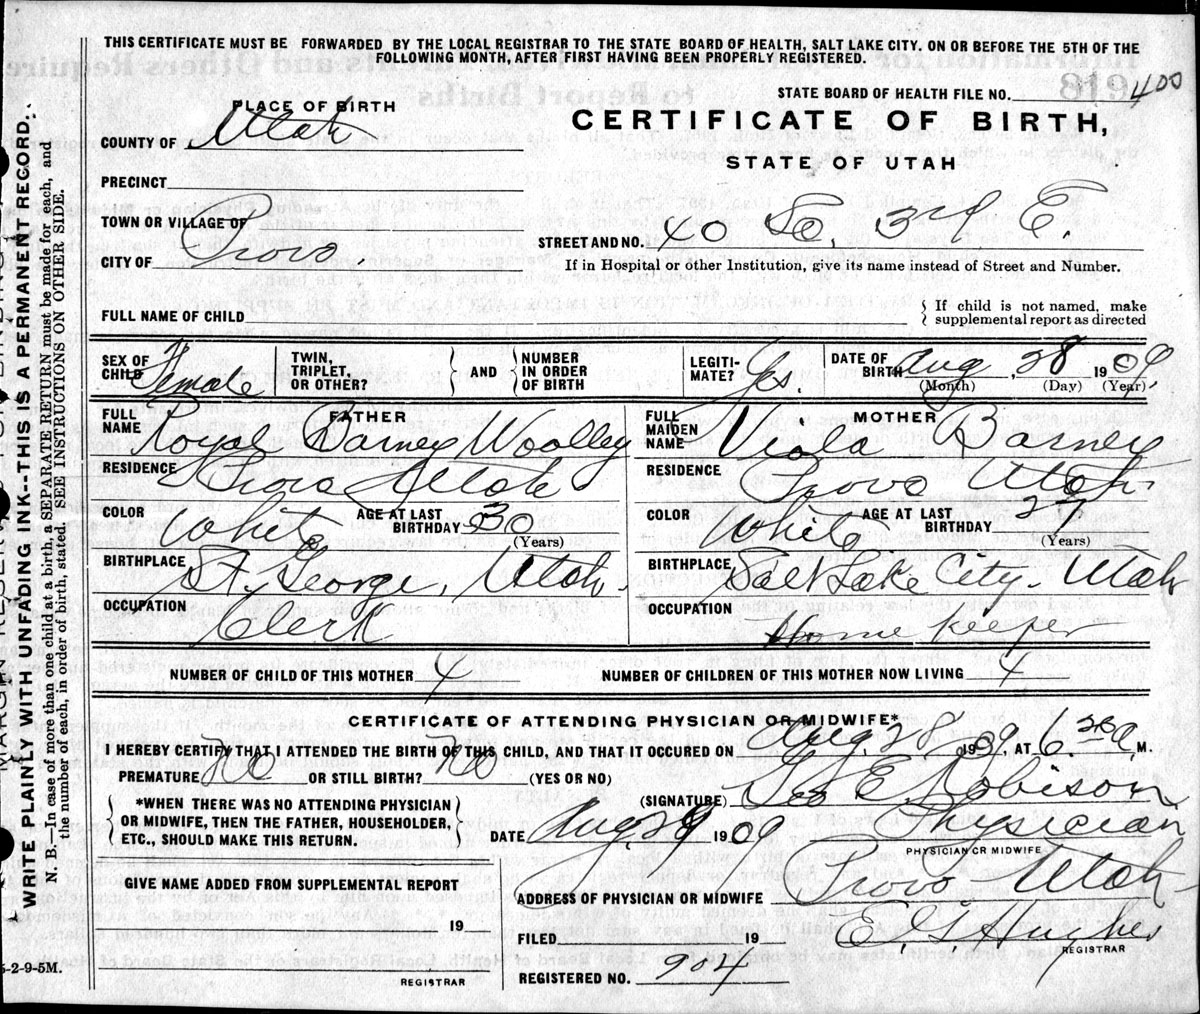 THIS CERTIFICATE MUST BE FORWARDED BY THE LOCAL REGISTRAR TO THE STATE BOARD OF HEALTH, SALT LAKE CITY. ON OR BEFORE THE 5TH OF THE
FOLLOWING MONTH, AFTER FIRST HAVING BEEN PROPERLY REGISTERED.
STATE BOARD OF HEALTH FILE NO. 400
PLACE OF BIRTH
CERTIFICATE OF BIRTH,
STATE OF UTAH
COUNTY OF Utah
PRECINCT
TOWN OR VILLAGE OF
CITY OF Provo.
STREET AND NO. 40 So. 3rd E.
If in Hospital or other Institution, give its name instead of Street and Number.
FULL NAME OF CHILD
If child is not named, make
supplemental report as directed
SEX OF CHILD Female
TWIN, TRIPLET, OR OTHER? AND NUMBER IN ORDER OF BIRTH
LEGITIMATE? Yes.
DATE OF BIRTH Aug, 28 1909
(Month) (Day) (Year)
FATHER
FULL NAME Royal Barney Woolley
RESIDENCE Provo Utah
COLOR White AGE AT LAST BIRTHDAY 30 (Years)
BIRTHPLACE St. George, Utah.
OCCUPATION Clerk
MOTHER
FULL MAIDEN NAME Viola Barney
RESIDENCE Provo Utah.
COLOR White AGE AT LAST BIRTHDAY 27 (Years)
BIRTHPLACE Salt Lake City. Utah
OCCUPATION Home Keeper
NUMBER OF CHILD OF THIS MOTHER 4 NUMBER OF CHILDREN OF THIS MOTHER NOW LIVING 4
CERTIFICATE OF ATTENDING PHYSICIAN OR MIDWIFE*
I HEREBY CERTIFY THAT I ATTENDED THE BIRTH OF THIS CHILD, AND THAT IT OCCURED ON Aug. 28 1909, AT 6 30 a. M.
PREMATURE No OR STILL BIRTH? No (YES OR NO)
*WHEN THERE WAS NO ATTENDING PHYSICIAN
OR MIDWIFE, THEN THE FATHER, HOUSEHOLDER,
ETC., SHOULD MAKE THIS RETURN.
(SIGNATURE) Geo E. Robison
DATE Aug. 29 1909 Physician
PHYSICIAN OR MIDWIFE
GIVE NAME ADDED FROM SUPPLEMENTAL REPORT
19
REGISTRAR
ADDRESS OF PHYSICIAN OR MIDWIFE Provo Utah
FILED 19 Hughes
REGISTRAR
REGISTERED NO. 904
WRITE PLAINLY WITH UNFADING INK---THIS IS A PERMANENT RECORD.
N. B.—In case of more than one child at a birth, a SEPARATE RETURN must be made for each, and
the number of each, in order of birth, stated. SEE INSTRUCTIONS ON OTHER SIDE.
5-2-9-5M.